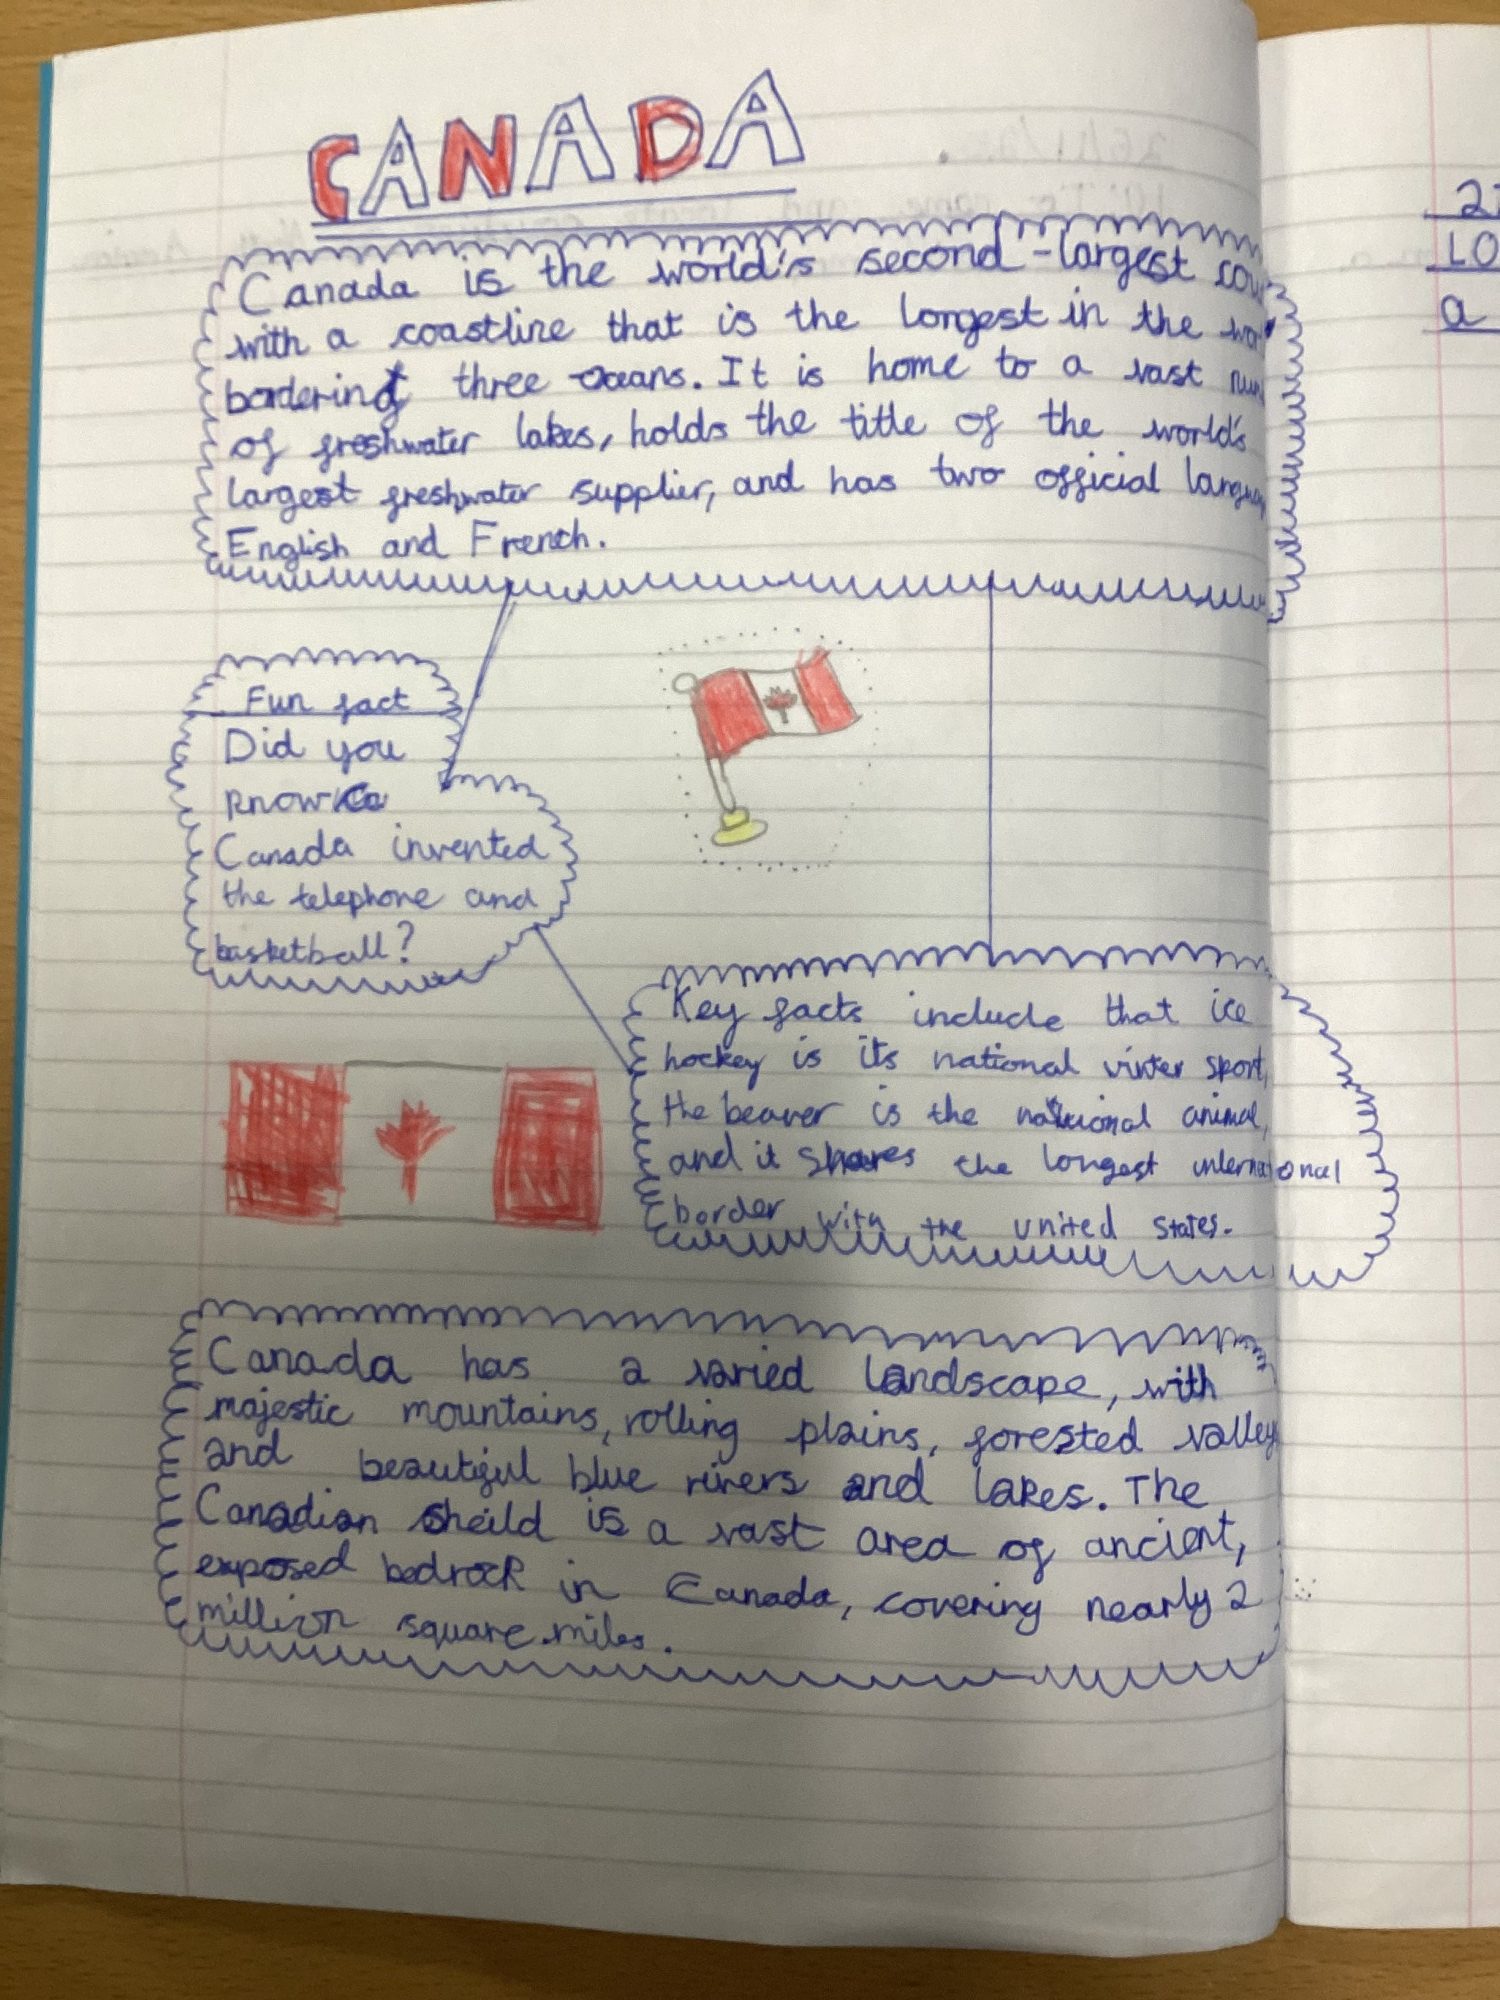 CANADA
Canada is the world's second-largest
with a coastline that is the longest in the
bordering three oceans. It is home to a vast
of freshwater lakes, holds the title of the world's
largest freshwater supplier, and has two official
English and French.
Fun fact
Did you
know
Canada invented
the telephone and
basketball?
Key facts include that ice
hockey is its national winter sport,
the beaver is the national animal,
and it shares the longest international
border with the united states.
Canada has a varied landscape, with
majestic mountains, rolling plains, forested valley
and beautiful blue rivers and lakes. The
Canadian sheild is a vast area of ancient,
exposed bedrock in Canada, covering nearly 2
million square miles.
LO
a